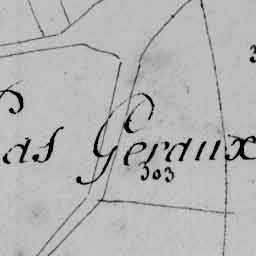 as Geraux
303